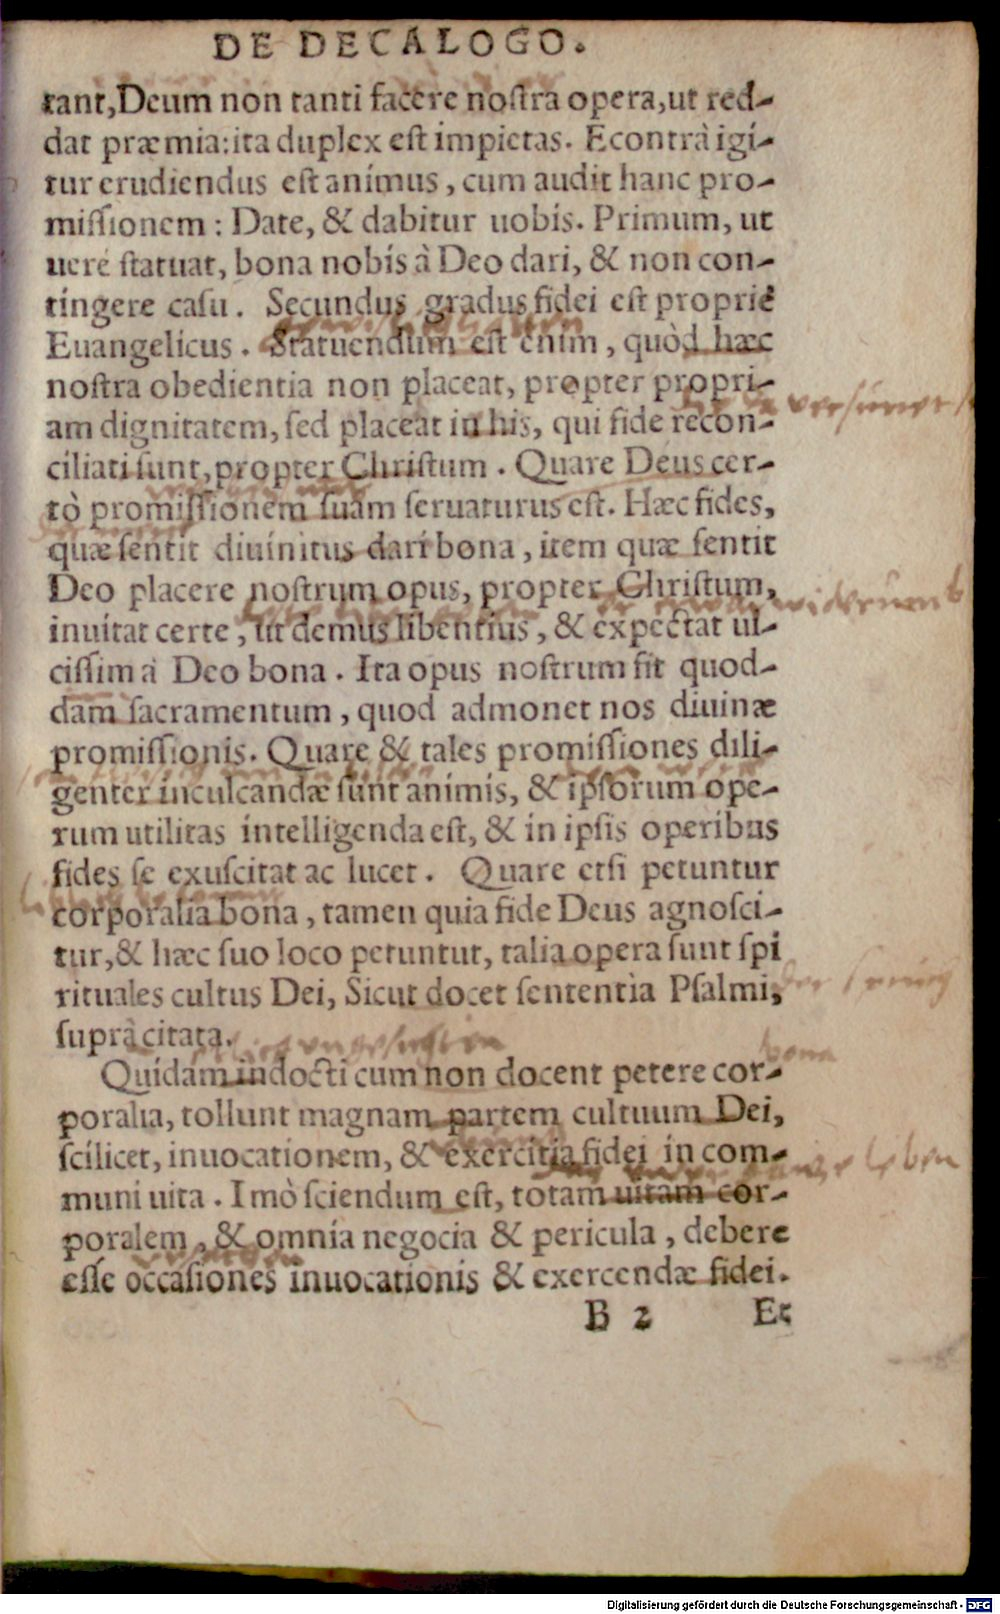 DE DECALOGO.
tant, Deum non tanti facere noſtra opera, ut red-
dat præmia: ita duplex eſt impietas. Econtrà igi-
tur erudiendus eſt animus, cum audit hanc pro-
miſſionem: Date, & dabitur uobis. Primum, ut
uerè ſtatuat, bona nobis à Deo dari, & non con-
tingere caſu. Secundus gradus fidei eſt propriè
Euangelicus. Statuendum eſt enim, quòd hæc
noſtra obedientia non placeat, propter propri-
am dignitatem, ſed placeat in his, qui fide recon-
ciliati ſunt, propter Chriſtum. Quare Deus cer-
tò promiſſionem ſuam ſeruaturus eſt. Hæc fides,
quæ ſentit diuinitus dari bona, item quæ ſentit
Deo placere noſtrum opus, propter Chriſtum,
inuitat certe, ut demus libentius, & expectat ui-
ciſſim à Deo bona. Ita opus noſtrum fit quod-
dam ſacramentum, quod admonet nos diuinæ
promiſſionis. Quare & tales promiſſiones dili-
genter inculcandæ ſunt animis, & ipſorum ope-
rum utilitas intelligenda eſt, & in ipſis operibus
fides ſe exuſcitat ac lucet. Quare etſi petuntur
corporalia bona, tamen quia fide Deus agnoſci-
tur, & hæc ſuo loco petuntut, talia opera ſunt ſpi
rituales cultus Dei, Sicut docet ſententia Pſalmi,
ſuprà citata.
bona
Quidam indocti cum non docent petere cor-
poralia, tollunt magnam partem cultuum Dei,
ſcilicet, inuocationem, & exercitia fidei in com-
leben
muni uita. Imò ſciendum eſt, totam uitam cor-
poralem, & omnia negocia & pericula, debere
eſſe occaſiones inuocationis & exercendæ fidei.
B 2 Et
Digitalisierung gefördert durch die Deutsche Forschungsgemeinschaft - DFG